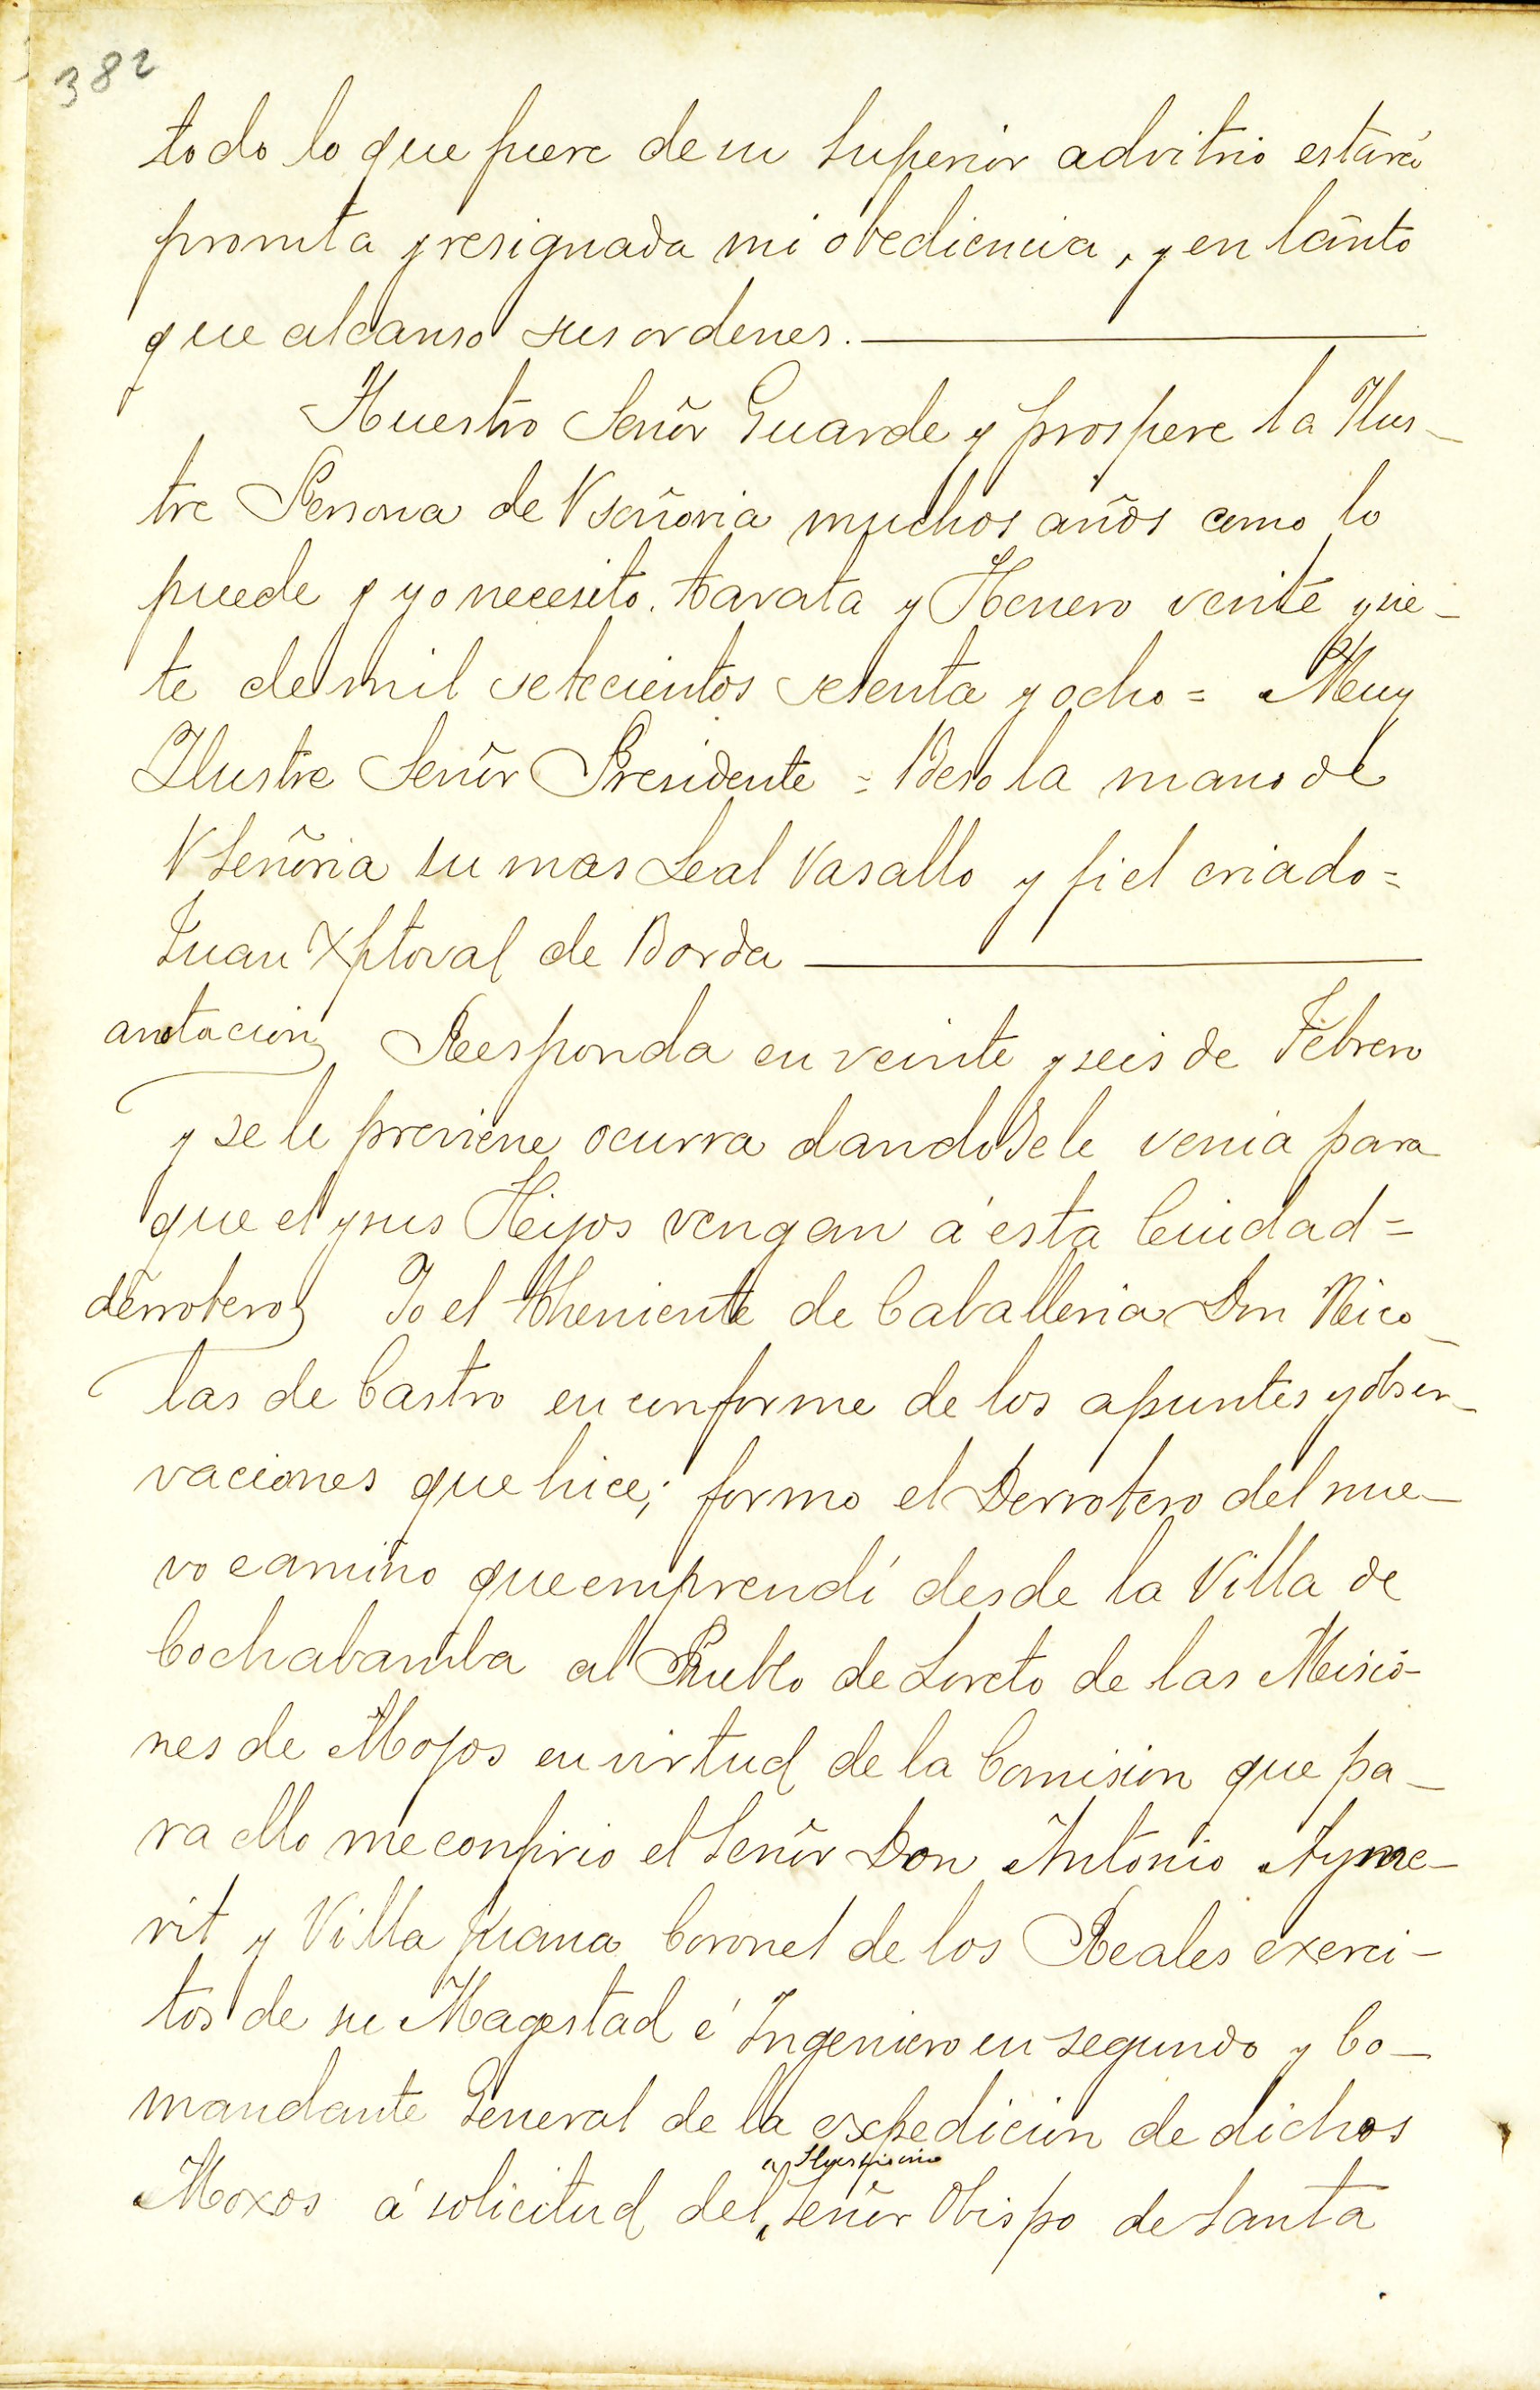 382
todo lo que fuere de su Superior advitrio estará
promta y resignada mi obediencia, y en tanto
que alcanso sus ordenes.
Nuestro Señor Guarde y prospere la Ylus-
tre Persona de V señoria muchos años como lo
puede y yo necesito. tarata y Henero veinte y sie-
te de mil setecientos setenta y ocho = Muy
Ylustre Señor Presidente = Beso la mano de
V Señoria su mas Leal Vasallo y fiel criado =
Juan Xptoval de Borda
anotacion Responda en veinte y seis de Febrero
y se le previene ocurra dandosele venia para
que el y sus Hijos vengan á esta Ciudad =
derrotero Yo el theniente de Caballeria Don Nico-
las de Castro en conforme de los apuntes y obser-
vaciones que hice; formo el Derrotero del nue-
vo camino que emprendí desde la Villa de
Cochabamba al Pueblo de Loreto de las Misio-
nes de Mojos en virtud de la Comision que pa-
ra ello me confirio el Señor Don Antonio Ayme-
rit y Villa juana Coronel de los Reales exerci-
tos de su Magestad é Ingeniero en segundo y Co-
mandante General de la expedicion de dichos
Ylustrisimo
Moxos á solicitud del Señor Obispo de Santa